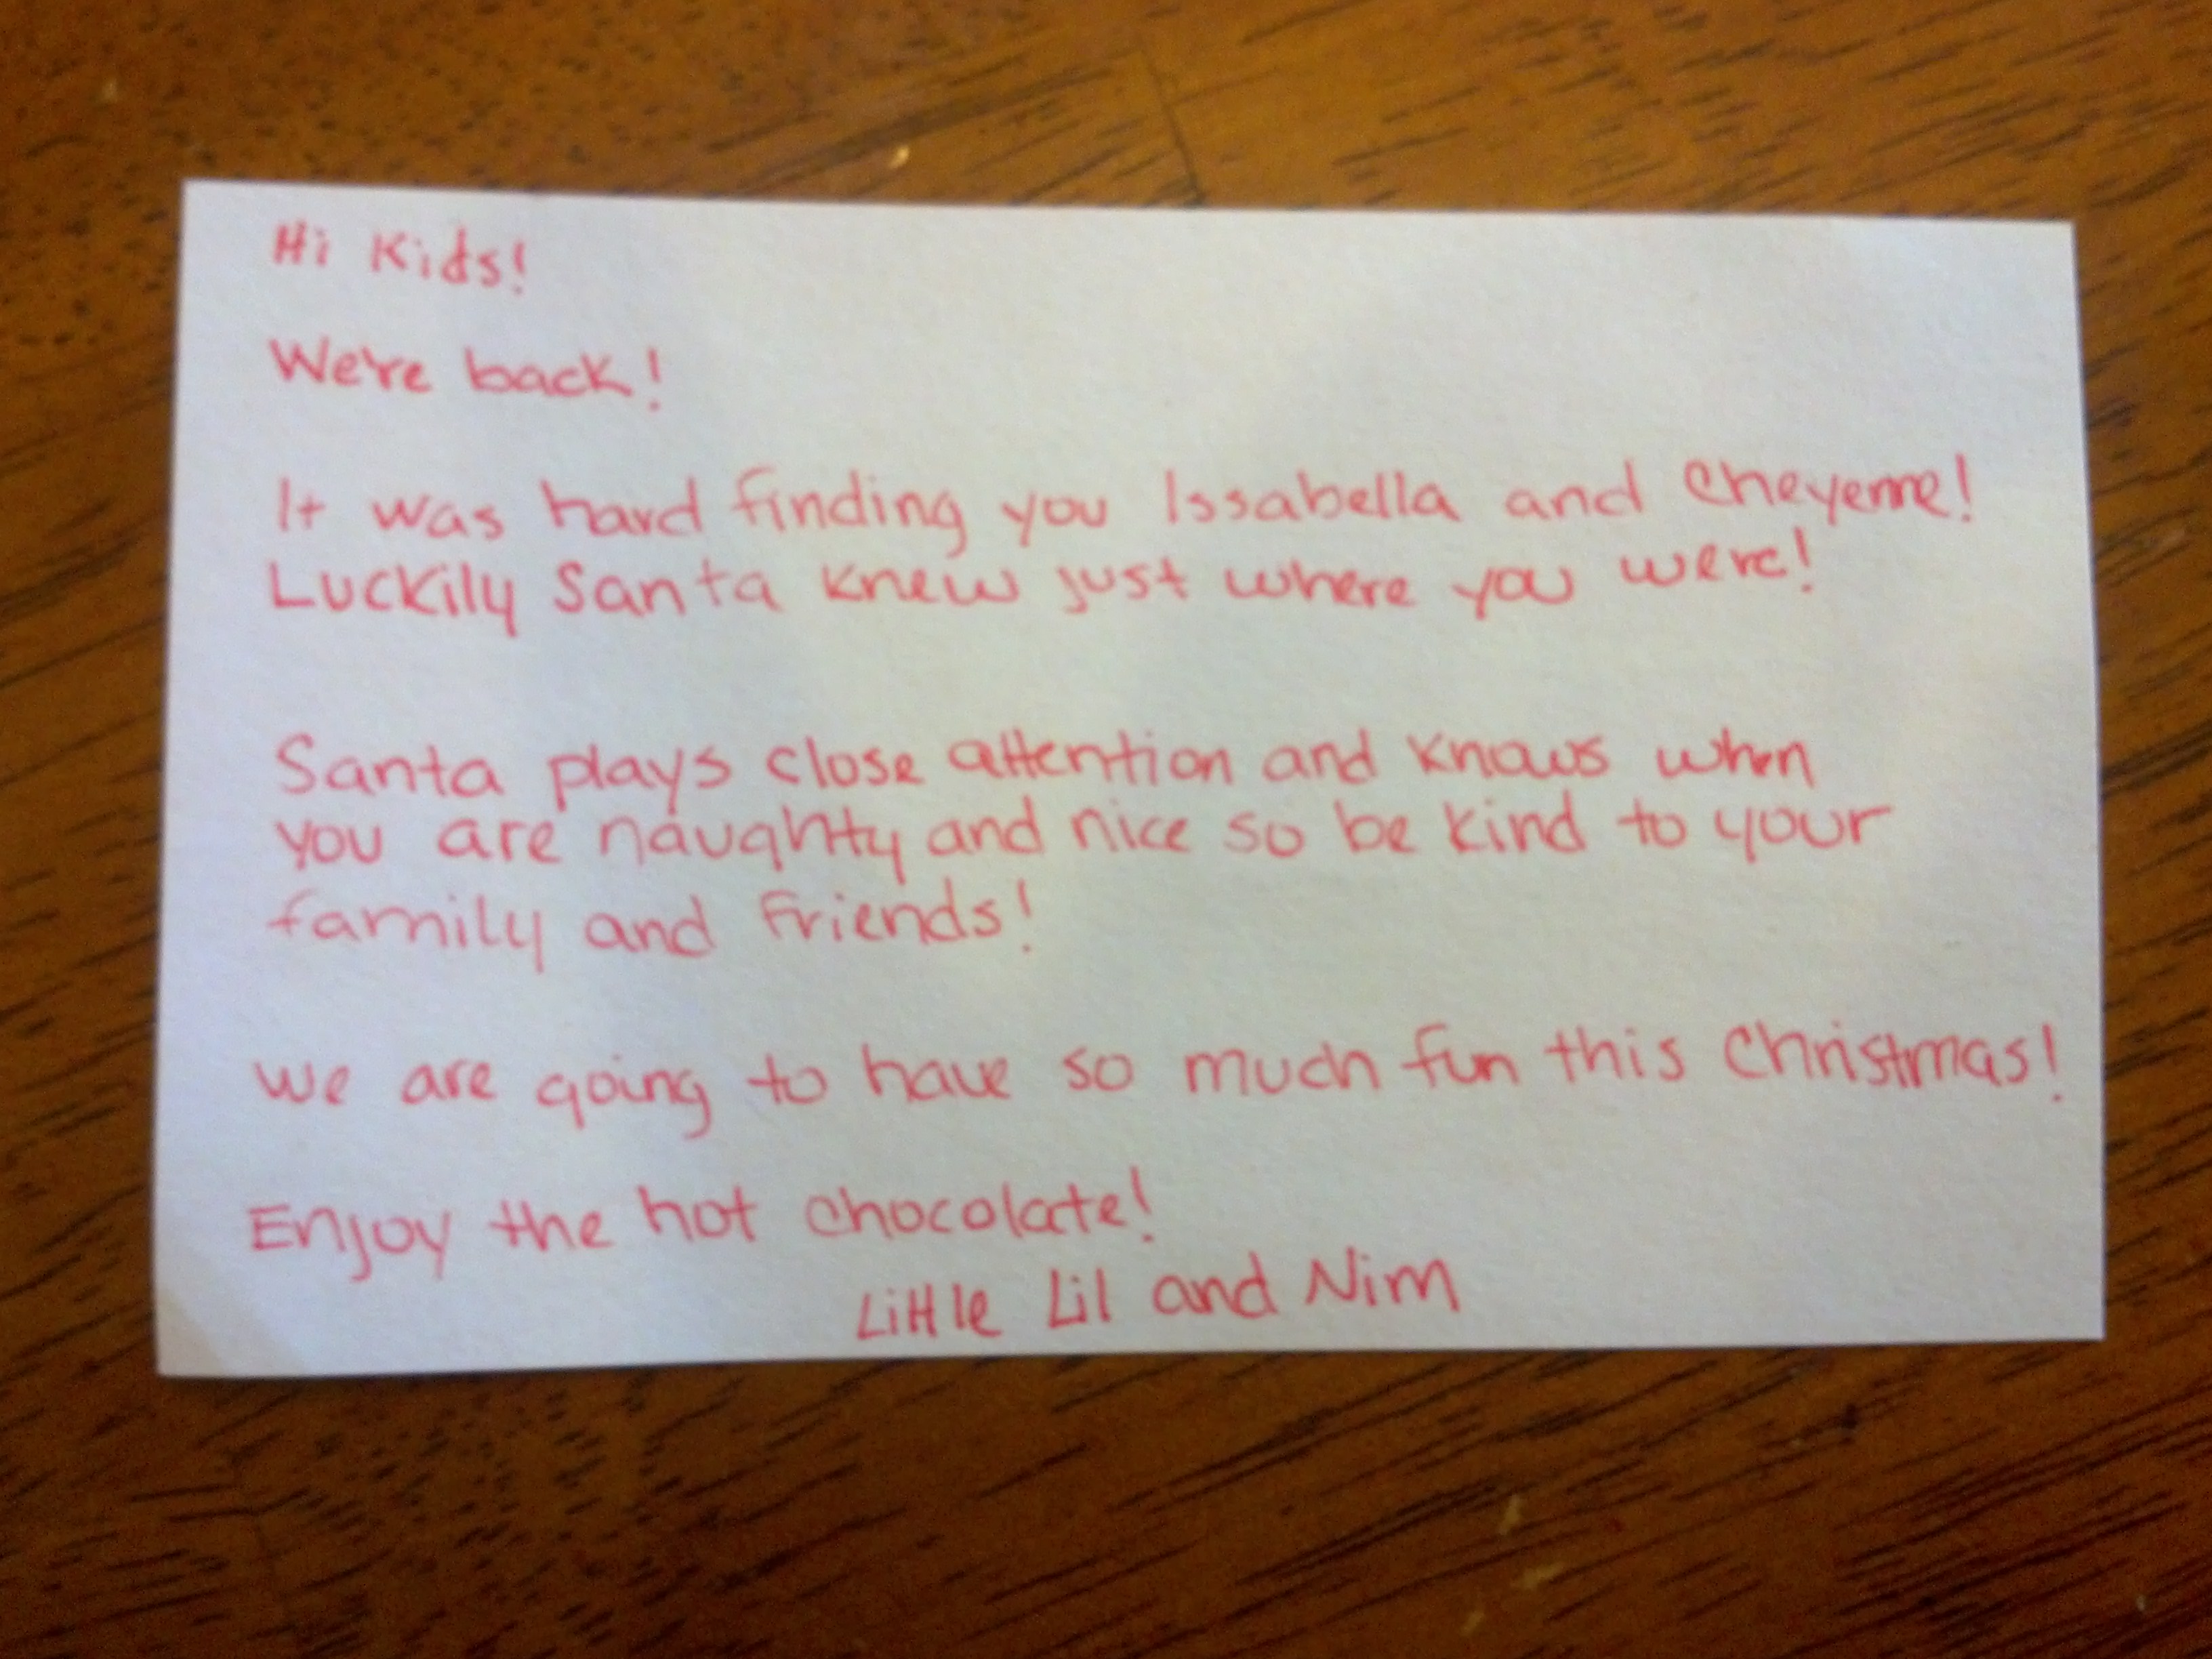 Hi Kids!
We're back!
It was hard finding you Issabella and Cheyenne!
Luckily Santa knew just where you were!
Santa plays close attention and knows when
you are naughty and nice so be kind to your
family and Friends!
we are going to have so much fun this Christmas!
Enjoy the hot chocolate!
Little Lil and Nim